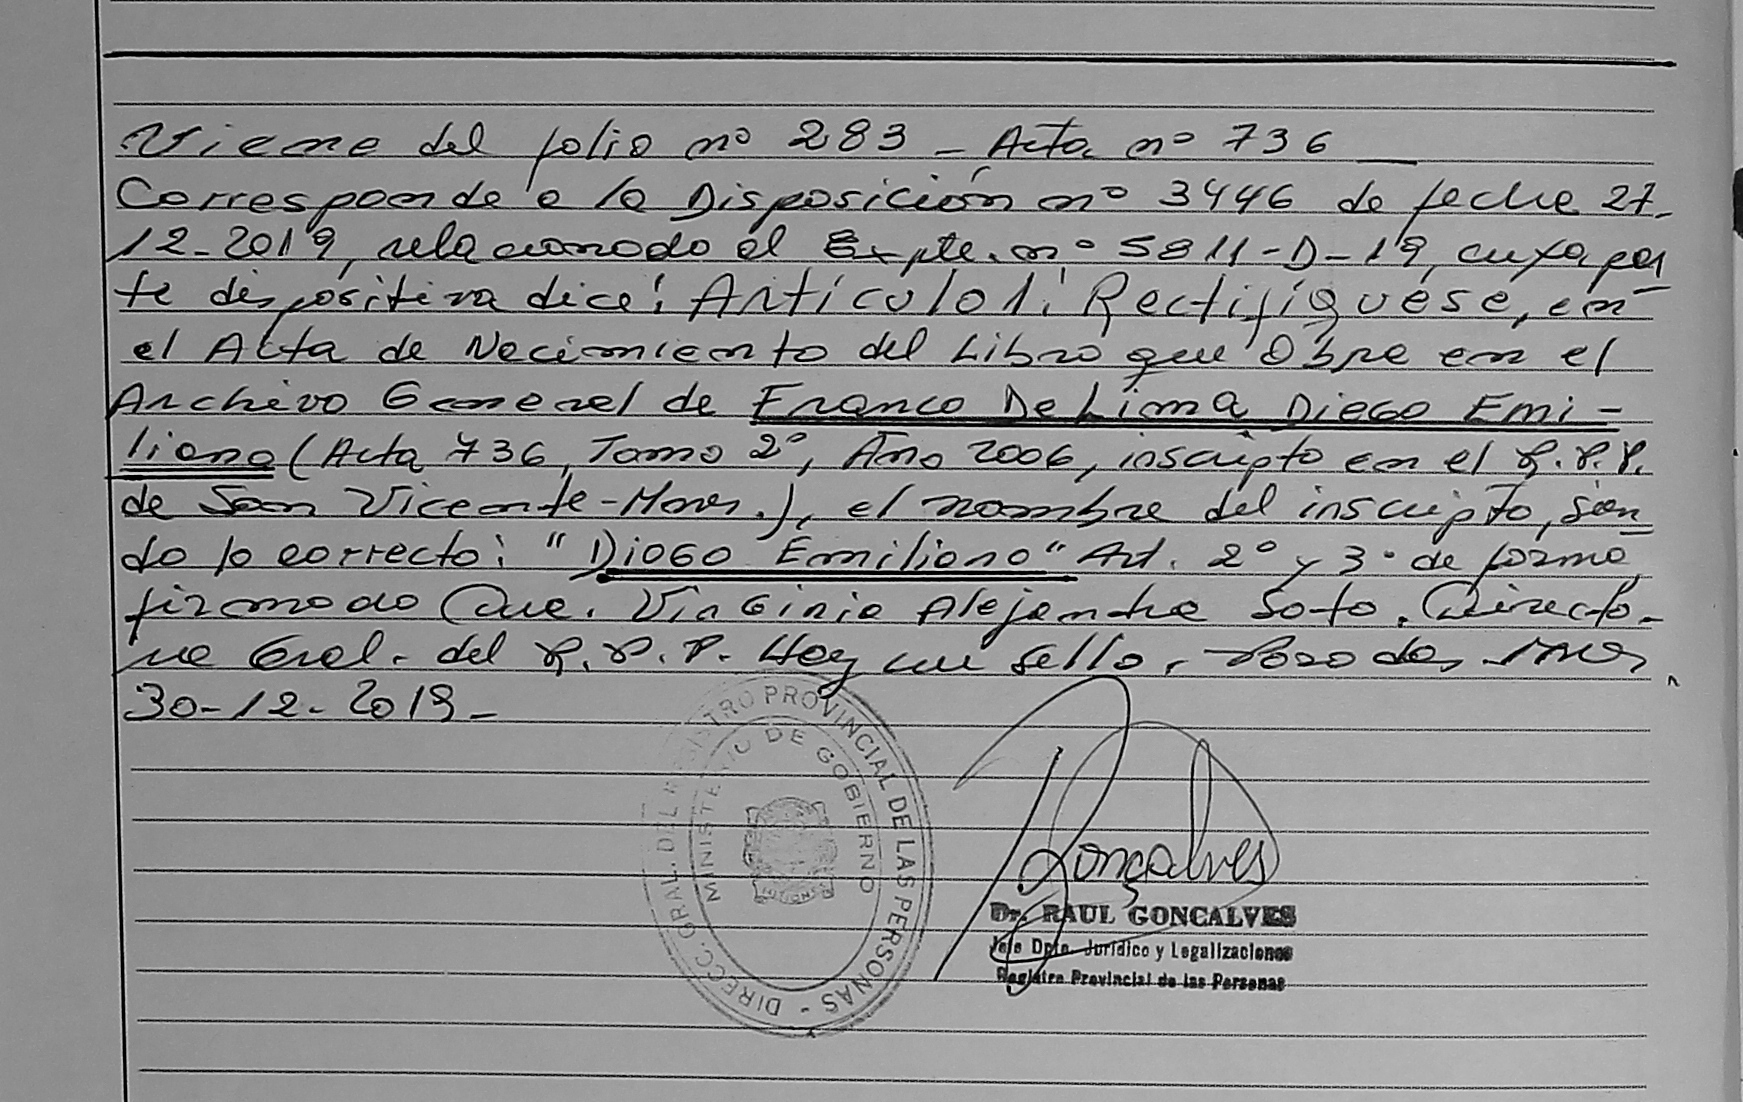 Viene del folio nº 283 - Acta nº 736
Corresponde a la Disposición nº 3446 de fecha 27-
12-2019, relacionado al Expte. nº 5811-D-19, cuya par
te dispositiva dice: Artículo 1: Rectifíquese, en
el Acta de Nacimiento del Libro que Obra en el
Archivo General de Franco De Lima Diego Emi-
liano (Acta 736, Tomo 2º, Año 2006, inscripto en el R.P.P.
de San Vicente-Mnes.), el nombre del inscripto, sien
do lo correcto: "Diogo Emiliano" Art. 2º y 3º de forma,
firmado Dra. Virginia Alejandra Soto. Directo-
ra Gral. del R.P.P. Hay un sello. Posadas, Mnes,
30-12-2019-
DIRECC. GRAL. DEL REGISTRO PROVINCIAL DE LAS PERSONAS -
MINISTERIO DE GOBIERNO
Gonçalves
Dr. RAUL GONCALVES
Jefe Dpto. Jurídico y Legalizaciones
Registro Provincial de las Personas